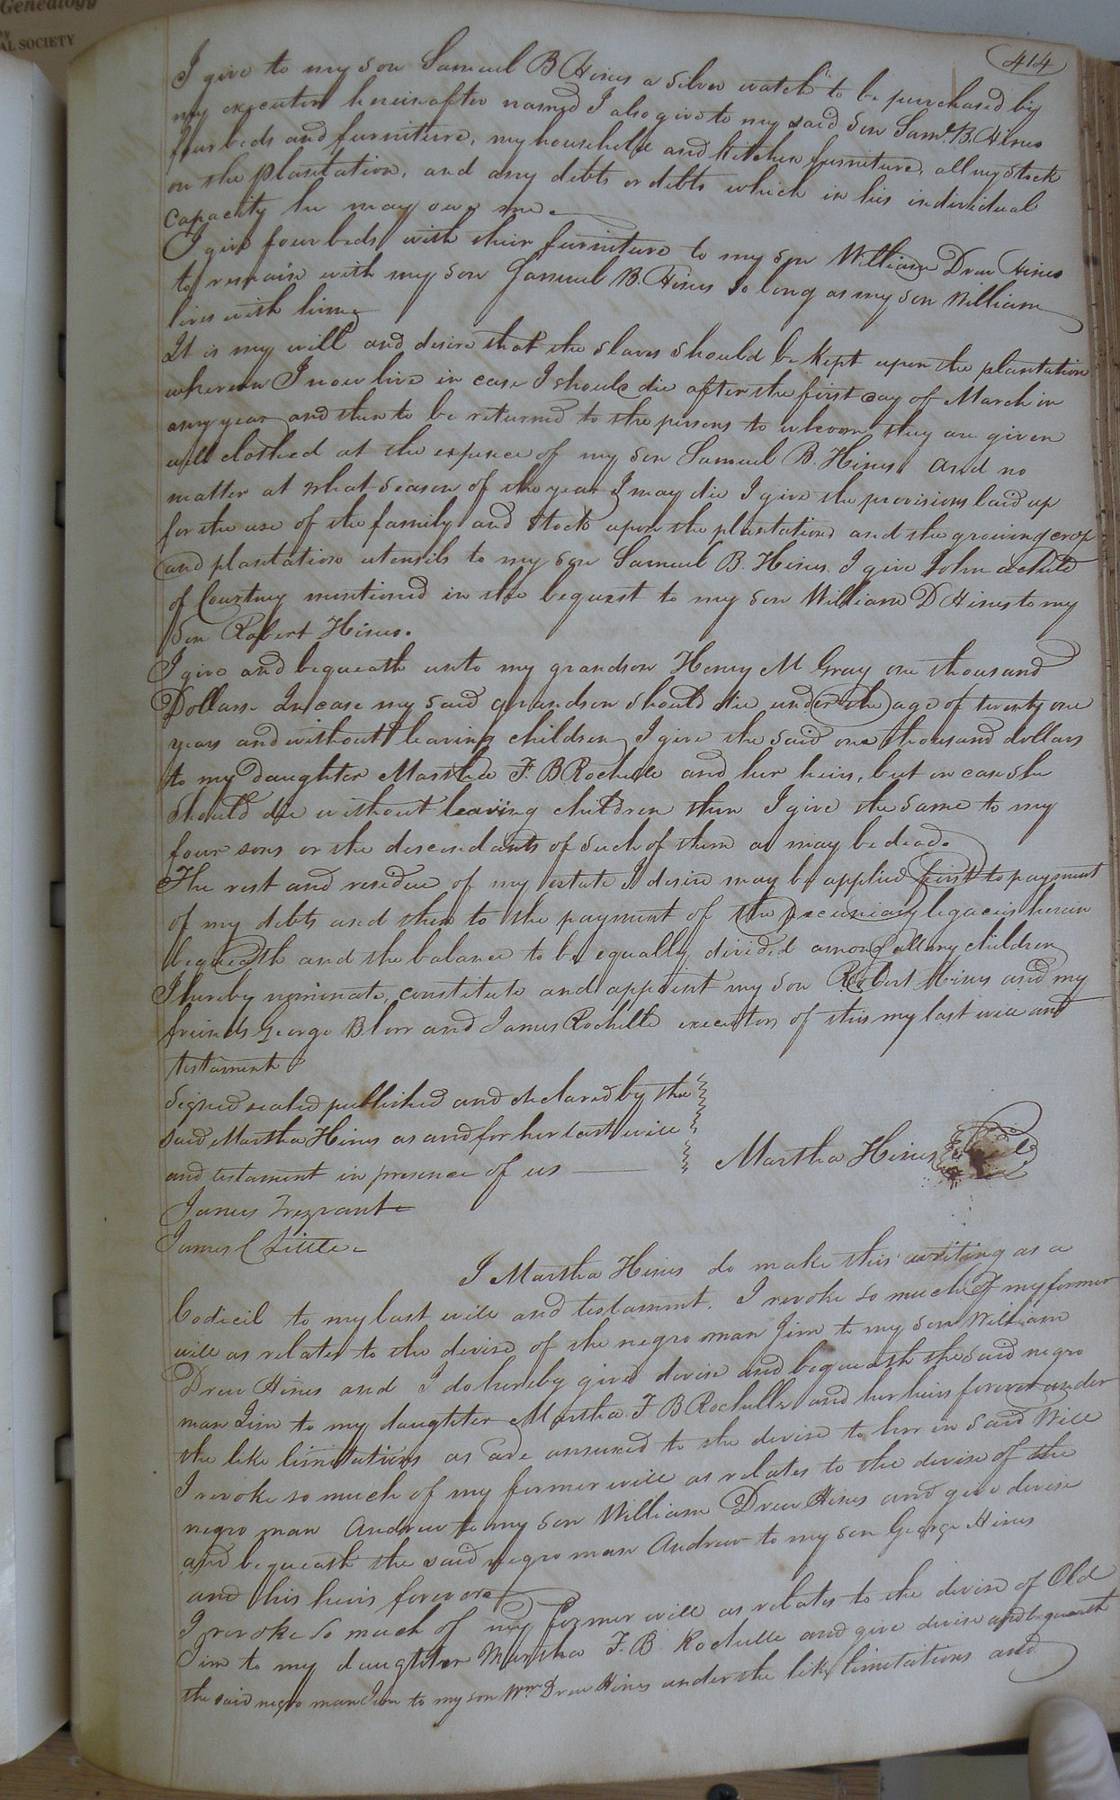 Genealogy
by
AL SOCIETY
414
I give to my son Samuel B Hines a silver watch to be purchased by
my executor hereinafter named I also give to my said son Saml. B. Hines
four beds and furniture, my household and Kitchen furniture, all my stock
on the plantation, and any debts or debts which in his individual
capacity he may owe me.
I give four beds with their furniture to my son William Drew Hines
to remain with my son Samuel B. Hines so long as my son William
lives with him.
It is my will and desire that the slaves should be kept upon the plantation
whereon I now live in case I should die after the first day of March in
any year and then to be returned to the persons to whom they are given
well clothed at the expence of my son Samuel B. Hines. And no
matter at what season of the year I may die I give the provisions laid up
for the use of the family and stock upon the plantation and the growing crop
and plantation utensils to my son Samuel B. Hines. I give John a child
of Courtney mentioned in the bequest to my son William D Hines to my
son Robert Hines.
I give and bequeath unto my grandson Henry M Gray one thousand
Dollars. In case my said grandson should die under the age of twenty one
years and without leaving children I give the said one thousand dollars
to my daughter Martha F. B Rochelle and her heirs, but in case she
should die without leaving children then I give the same to my
four sons or the descendants of such of them as may be dead.
The rest and residue of my estate I desire may be applied first to payment
of my debts and then to the payment of the pecuniary legacies herein
bequeath and the balance to be equally divided among all my children
I hereby nominate, constitute and appoint my son Robert Hines and my
friends George B and James Rochelle executors of this my last will and
testament
Signed sealed published and declared by the
said Martha Hines as and for her last will
and testament in presence of us
Martha Hines Seal
James Trezvant
James C Little
I Martha Hines do make this writing as a
Codicil to my last will and testament. I revoke so much of my former
will as relates to the devise of the negro man Jim to my son William
Drew Hines and I do hereby give devise and bequeath the said negro
man Jim to my daughter Martha F B Rochelle and her heirs forever under
the like limitations as are annexed to the devise to her in said Will
I revoke so much of my former will as relates to the devise of the
negro man Andrew to my son William Drew Hines and give devise
and bequeath the said negro man Andrew to my son George Hines
and his heirs forever
I revoke so much of my former will as relates to the devise of Old
Jim to my daughter Martha F. B. Rochelle and give devise and bequeath
the said negro man Jim to my son Wm. Drew Hines under the like limitations and